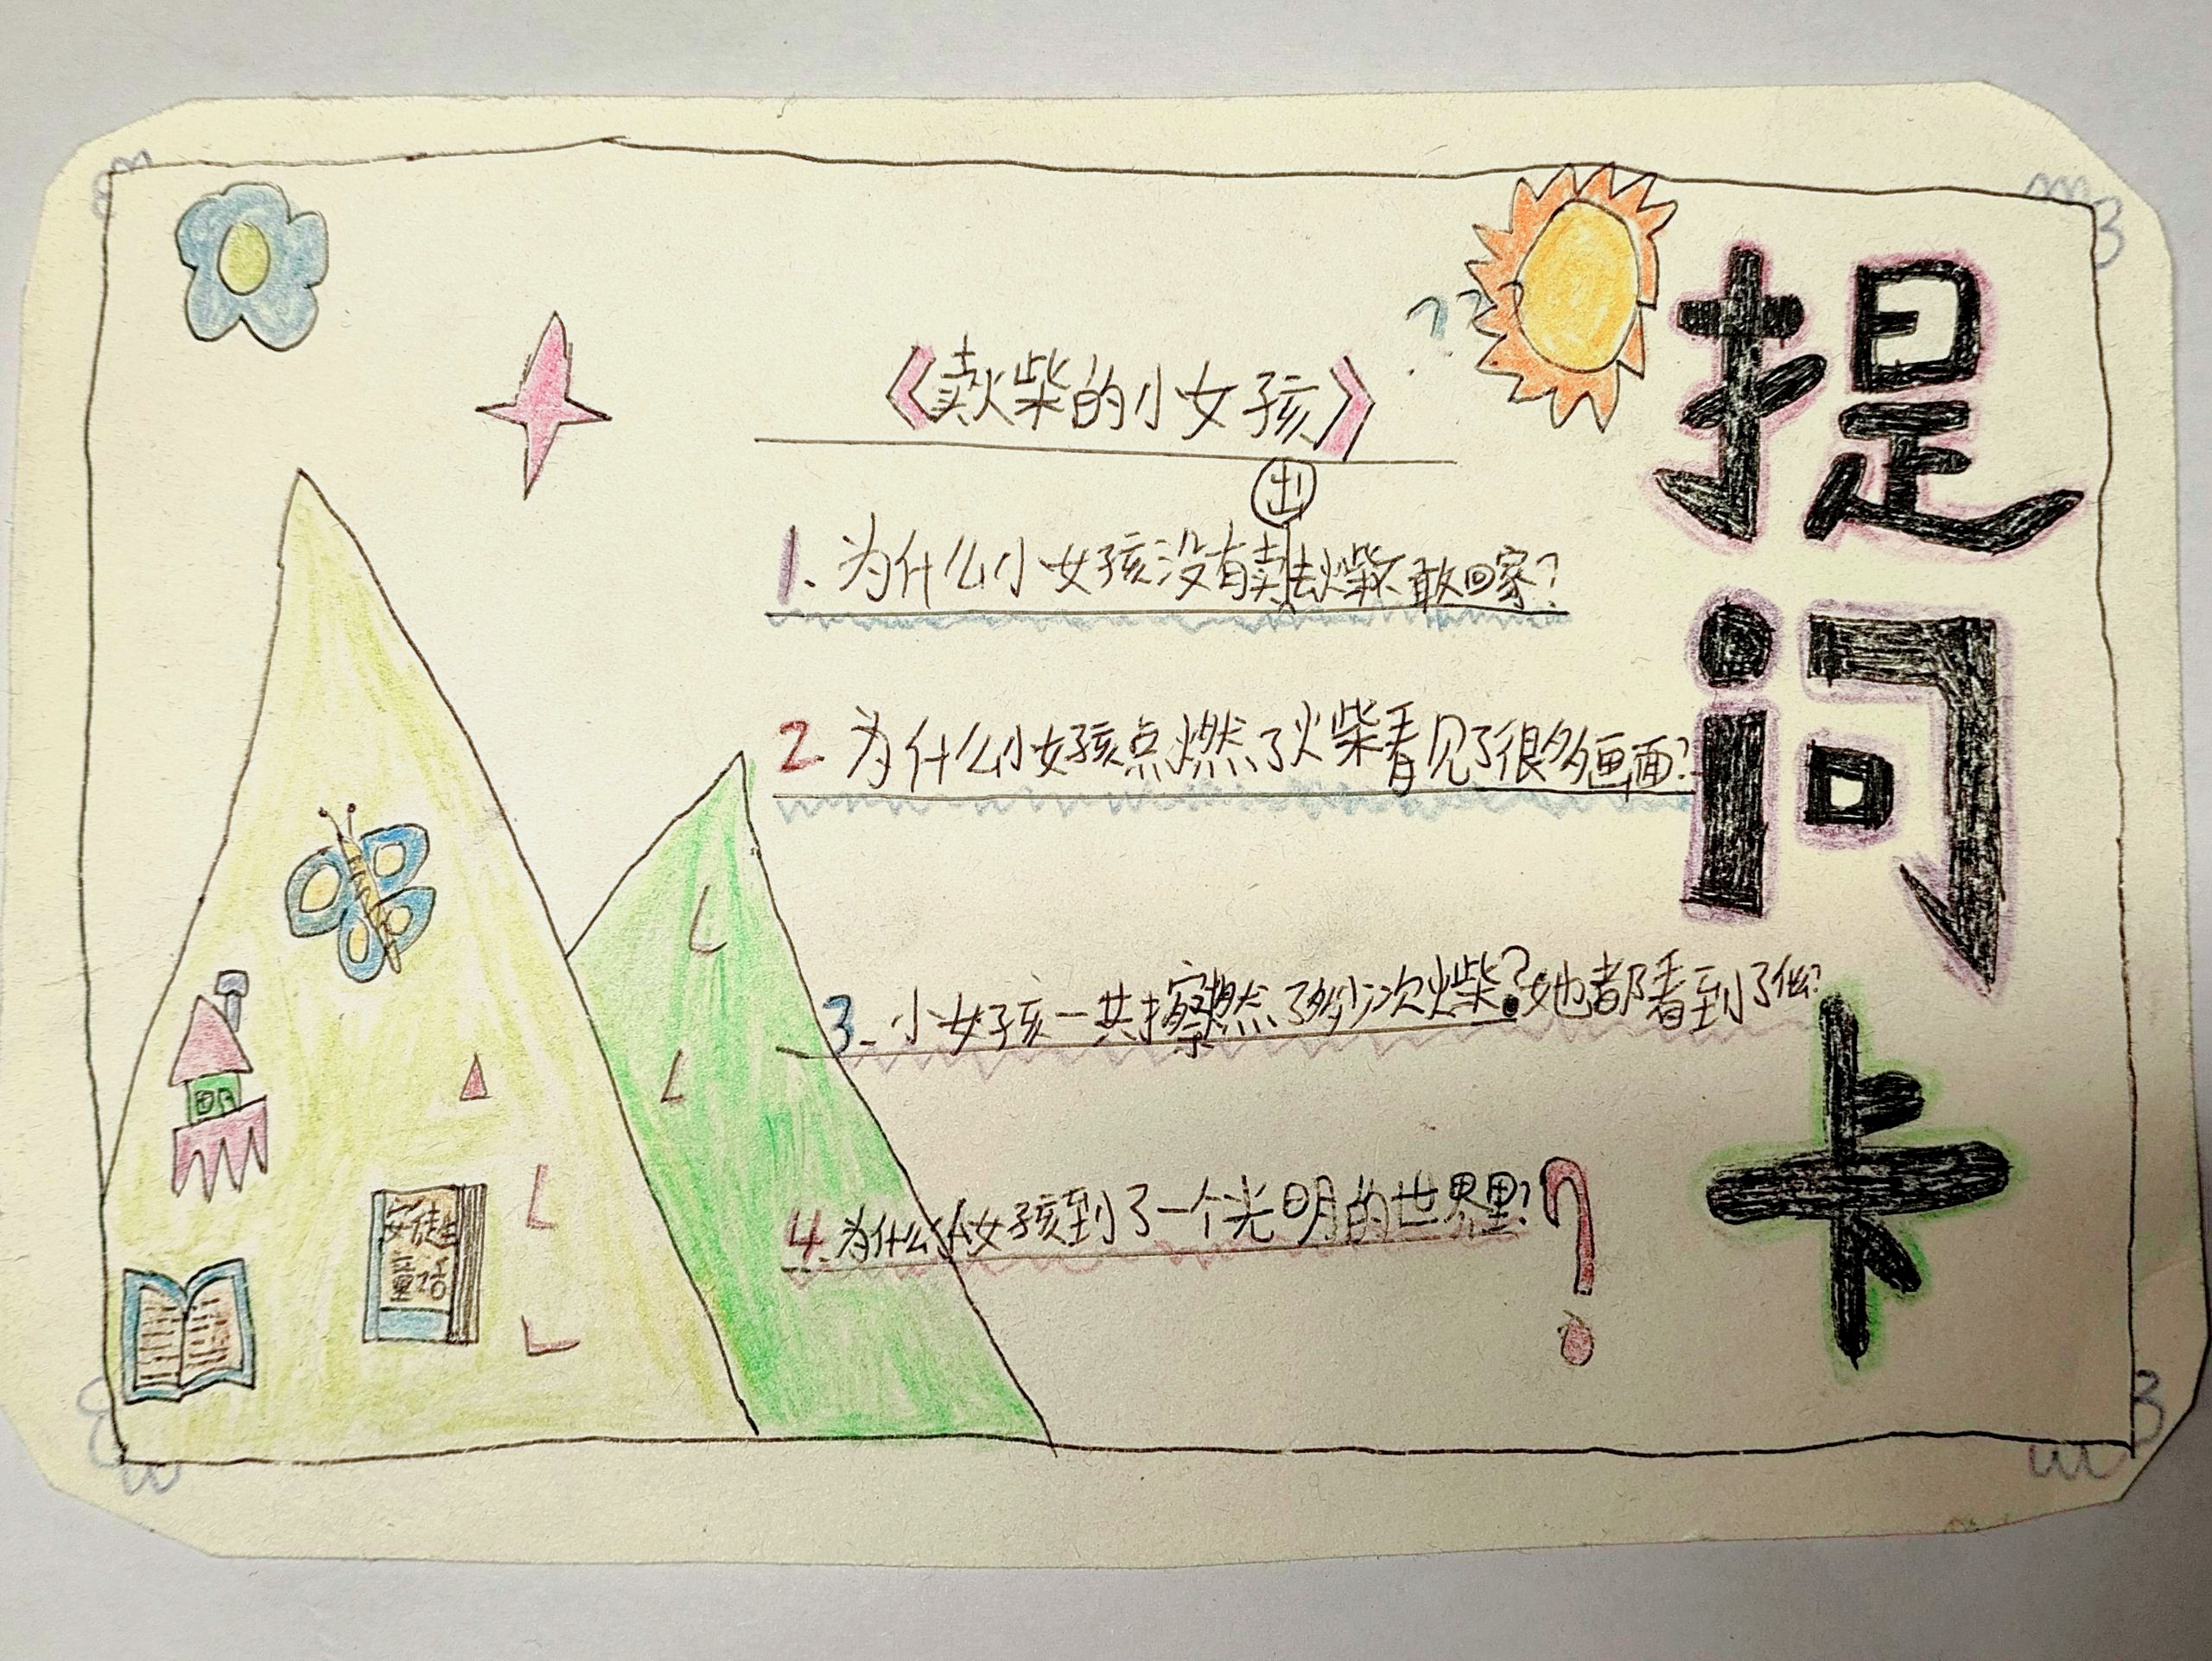 提问卡
《卖火柴的小女孩》
出
1.为什么小女孩没有卖去火柴不敢回家?
2.为什么小女孩点燃了火柴看见了很多画面?
3.小女孩一共擦燃了多少次火柴?她都看到了什么?
4.为什么小女孩到了一个光明的世界里?
?
安徒生
童话